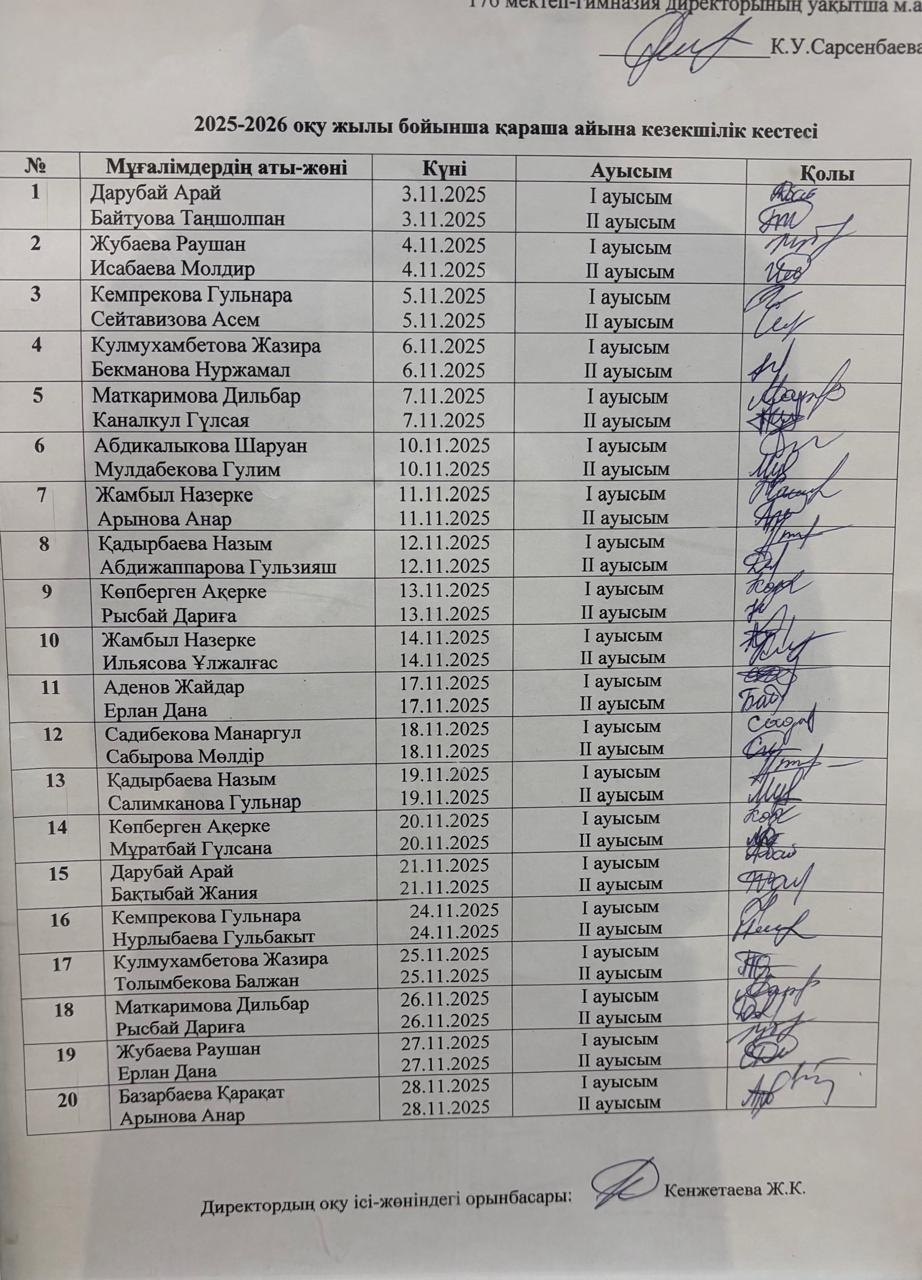 176 мектеп-гимназия директорының уақытша м.а
К.У.Сарсенбаева
2025-2026 оқу жылы бойынша қараша айына кезекшілік кестесі
№ Мұғалімдердің аты-жөні Күні Ауысым Қолы
1 Дарубай Арай 3.11.2025 I ауысым
Байтуова Таңшолпан 3.11.2025 II ауысым
2 Жубаева Раушан 4.11.2025 I ауысым
Исабаева Молдир 4.11.2025 II ауысым
3 Кемпрекова Гульнара 5.11.2025 I ауысым
Сейтавизова Асем 5.11.2025 II ауысым
4 Кулмухамбетова Жазира 6.11.2025 I ауысым
Бекманова Нуржамал 6.11.2025 II ауысым
5 Маткаримова Дильбар 7.11.2025 I ауысым
Каналкул Гүлсая 7.11.2025 II ауысым
6 Абдикалыкова Шаруан 10.11.2025 I ауысым
Мулдабекова Гулим 10.11.2025 II ауысым
7 Жамбыл Назерке 11.11.2025 I ауысым
Арынова Анар 11.11.2025 II ауысым
8 Қадырбаева Назым 12.11.2025 I ауысым
Абдижаппарова Гульзияш 12.11.2025 II ауысым
9 Көпберген Ақерке 13.11.2025 I ауысым
Рысбай Дариға 13.11.2025 II ауысым
10 Жамбыл Назерке 14.11.2025 I ауысым
Ильясова Ұлжалғас 14.11.2025 II ауысым
11 Аденов Жайдар 17.11.2025 I ауысым
Ерлан Дана 17.11.2025 II ауысым
12 Садибекова Манаргул 18.11.2025 I ауысым
Сабырова Мөлдір 18.11.2025 II ауысым
13 Қадырбаева Назым 19.11.2025 I ауысым
Салимканова Гульнар 19.11.2025 II ауысым
14 Көпберген Ақерке 20.11.2025 I ауысым
Мұратбай Гүлсана 20.11.2025 II ауысым
15 Дарубай Арай 21.11.2025 I ауысым
Бақтыбай Жания 21.11.2025 II ауысым
16 Кемпрекова Гульнара 24.11.2025 I ауысым
Нурлыбаева Гульбакыт 24.11.2025 II ауысым
17 Кулмухамбетова Жазира 25.11.2025 I ауысым
Толымбекова Балжан 25.11.2025 II ауысым
18 Маткаримова Дильбар 26.11.2025 I ауысым
Рысбай Дариға 26.11.2025 II ауысым
19 Жубаева Раушан 27.11.2025 I ауысым
Ерлан Дана 27.11.2025 II ауысым
20 Базарбаева Қарақат 28.11.2025 I ауысым
Арынова Анар 28.11.2025 II ауысым
Директордың оқу ісі-жөніндегі орынбасары: Кенжетаева Ж.К.